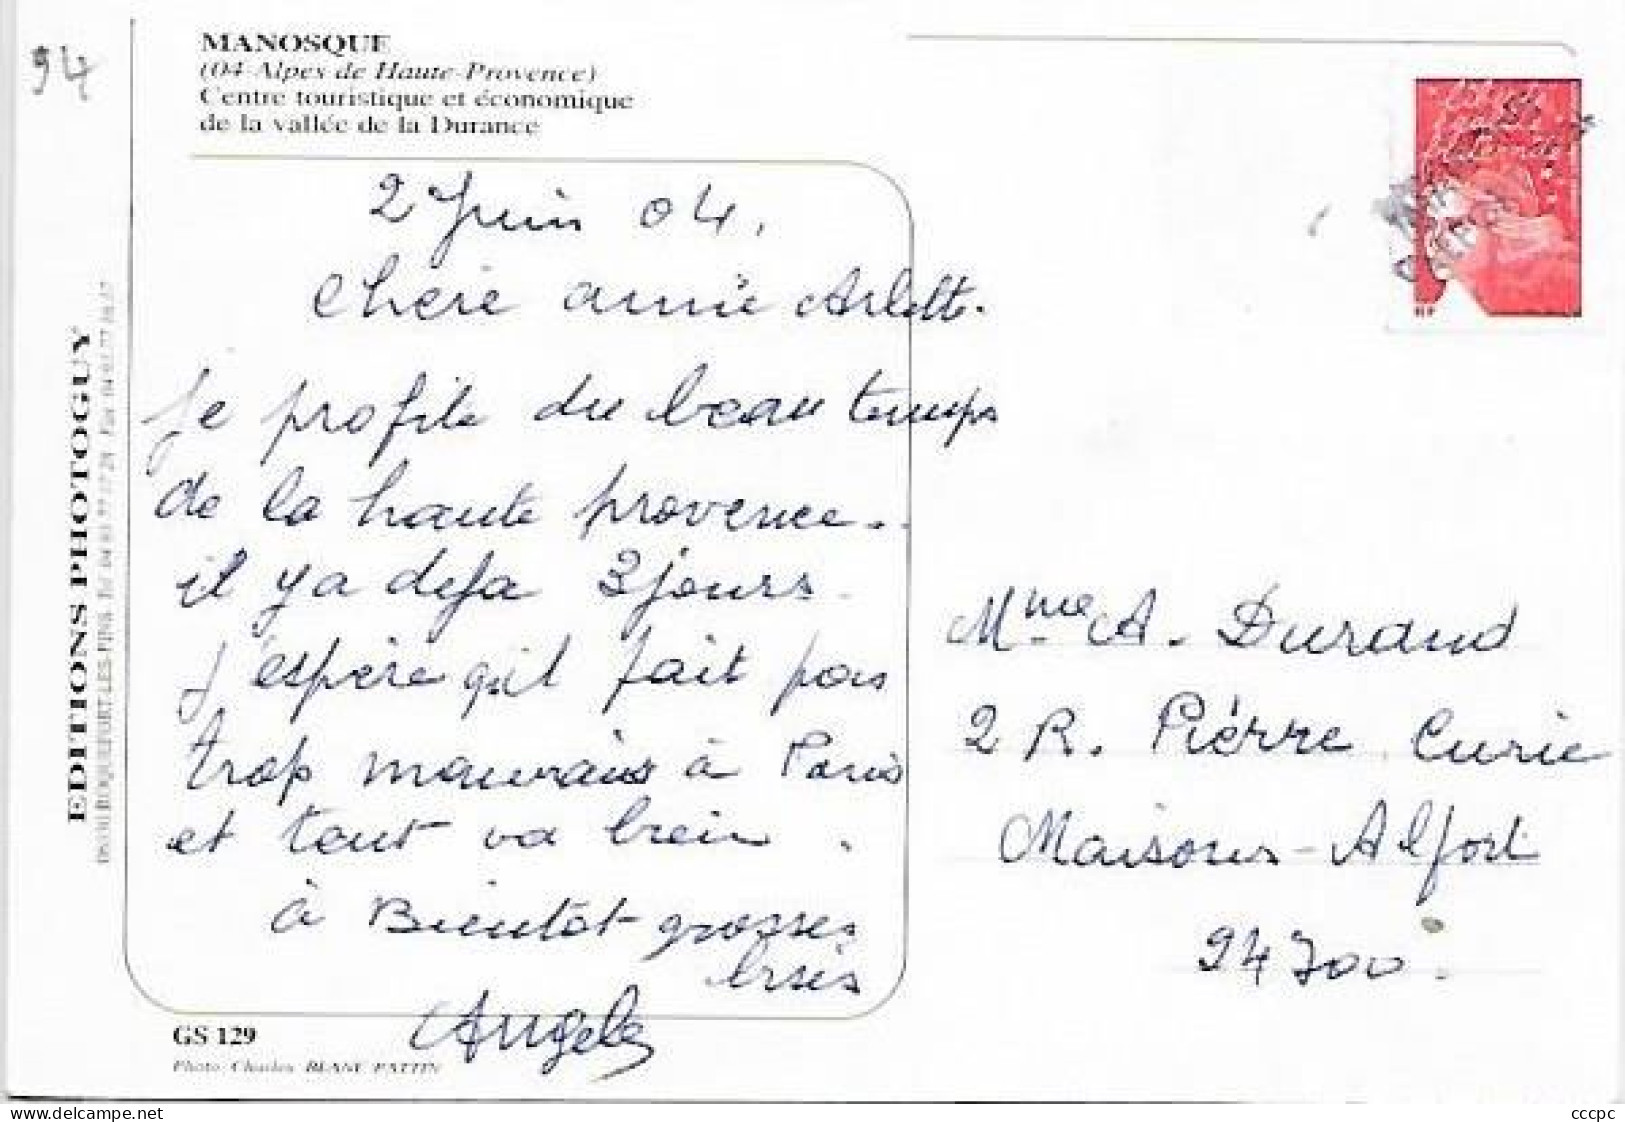 94
MANOSQUE
(04-Alpes de Haute-Provence)
Centre touristique et économique
de la vallée de la Durance
2 Juin 04.
Chère amie Arlette.
Je profite du beau temps
de la haute provence..
il y a deja 3 jours.
j'espère qu'il fait pas
trop mauvais à Paris
et tout va bien.
à Bientôt grosses
bises
Angele
GS 129
Photo Charles BLANC PATTIN
EDITIONS PHOTOGUY
06330 ROQUEFORT-LES-PINS
Mme A. Durand
2 R. Pierre Curie
Maisons-Alfort
94700.
RF
cccpc
delcampe.net